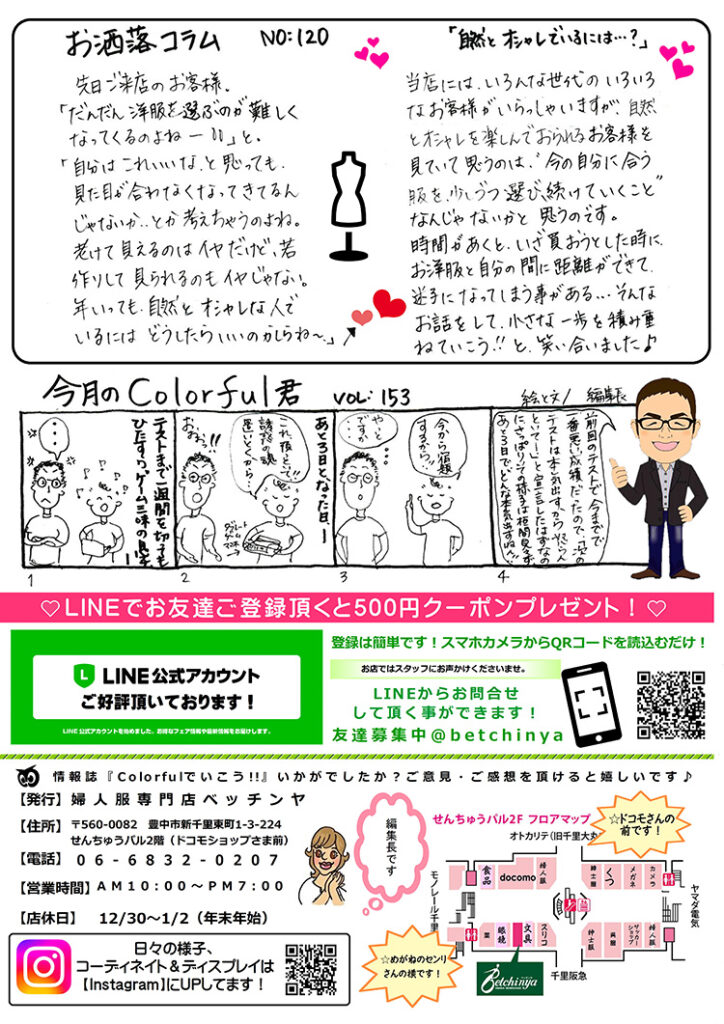 お洒落コラム NO:120
「自然とオシャレでいるには…？」
先日ご来店のお客様。
「だんだん洋服を選ぶのが難しく
なってくるのよねー!!」と。
「自分はこれいいな、と思っても、
見た目が合わなくなってきてるん
じゃないか‥とか考えちゃうのよね。
老けて見えるのはイヤだけど、若
作りして見られるのもイヤじゃない。
年いっても、自然とオシャレな人で
いるにはどうしたらいいのかしらね〜。」
当店には、いろんな世代のいろいろ
なお客様がいらっしゃいますが、自然
とオシャレを楽しんでおられるお客様を
見ていて思うのは、“今の自分に合う
服を、少しづつ選び、続けていくこと”
なんじゃないかと思うのです。
時間があくと、いざ買おうとした時に、
お洋服と自分の間に距離ができて、
迷子になってしまう事がある…そんな
お話をして、小さな一歩を積み重
ねていこう!!と、笑い合いました♪
今月のColorful君 VOL:153
絵と文/ 編集長
テストまで一週間を切っても
ひたすらゲーム三昧の息子
・・・
1
おぉっ!!
これ、夜といて!!
誘惑の魂
置いとくから!
2
あと3日となった日、ー
やっと
ですか
今から宿題
するから!!
3
前回のテストで今までで
一番悪い成績だったので、「次の
テストは本気出すから
といてー!」と宣言したはずなの
に、やっぱりその様子は垣間見えず、
あと3日でどんな本気出すねん!!
4
♡LINEでお友達ご登録頂くと500円クーポンプレゼント！♡
LINE公式アカウント
ご好評頂いております！
LINE公式アカウントを始めました。お得なフェア情報や最新情報をお届けします。
登録は簡単です！スマホカメラからQRコードを読込むだけ！
お店ではスタッフにお声かけくださいませ。
LINEからお問合せ
して頂く事ができます！
友達募集中@betchinya
情報誌『Colorfulでいこう!!』いかがでしたか？ご意見・ご感想を頂けると嬉しいです♪
【発行】婦人服専門店ベッチンヤ
【住所】 〒560-0082 豊中市新千里東町1-3-224
せんちゅうパル2階（ドコモショップさま前）
【電話】 06-6832-0207
【営業時間】AM10:00～PM7:00
【店休日】 12/30～1/2（年末年始）
日々の様子、
コーディネイト＆ディスプレイは
【Instagram】にUPしてます！
編集長です
せんちゅうパル2F フロアマップ
オトカリテ(旧千里大丸
☆ドコモさんの
前です！
モノレール千里
食品
docomo
婦人服
紳士服
くつ
メガネ
カメラ
ヤマダ電気
薬
眼鏡
文具
スリコ
紳士服
呉服
婦人服
☆めがねのセンリ
さんの横です！
Betchinya
千里阪急